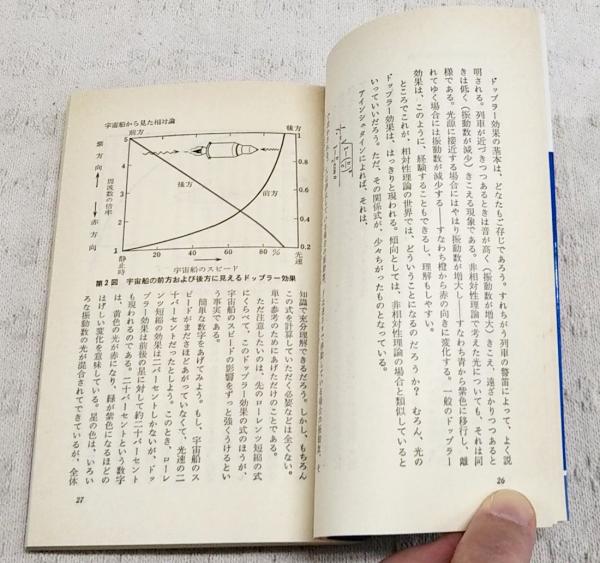 ドップラー効果の基本は、どなたもご存じであろう。すれちがう列車の警笛によって、よく説
明される。列車が近づきつつあるときは音が高く(振動数が増大)きこえ、遠ざかりつつあると
きは低く(振動数が減少)きこえる現象である。非相対性理論で考えた光についても、それは同
様である。光源に接近する場合にはやはり振動数が増大し——すなわち青から紫色に移行し、離
れてゆく場合には振動数が減少する——すなわち橙から赤の向きに変化する。一般のドップラー
効果は、このように、経験することもできるし、理解もしやすい。
ところでこれが、相対性理論の世界では、どういうことになるのだろうか? むろん、光の
ドップラー効果は、はっきりと現われる。傾向としては、非相対性理論の場合と類似していると
いっていいだろう。ただ、その関係式が、少々ちがったものとなっている。
アインシュタインによれば、それは、
26
宇宙船から見た相対論
前方
後方
5
4
3
2
1
紫方向
周波数の倍率
赤方向
後方
前方
1
0.8
0.6
0.4
0.2
静止時
20
40
60
80
%
光速
宇宙船のスピード
第2図 宇宙船の前方および後方に見えるドップラー効果
知識で充分理解できるだろう。しかし、もちろん
この式を計算していただく必要などは全くない。
単に参考のためにあげただけのことである。
ただ注意したいのは、先のローレンツ短縮の式
にくらべて、このドップラー効果の式のほうが、
宇宙船のスピードの影響をずっと強くうけるとい
う事実である。
簡単な数字をあげてみよう。もし、宇宙船のス
ピードがまださほどあがっていなくて、光速の二
十パーセントだったとしよう。このとき、ローレ
ンツ短縮の効果は二パーセントしかないが、ドッ
プラー効果は前後の星に対して約二十パーセント
も現われるのである。二十パーセントという数字
は、黄色の光が赤になり、緑が紫色になるほどの
はげしい変化を意味している。星の色は、いろい
ろな振動数の光が混合されてできているが、全体
27